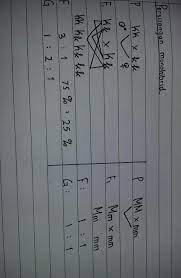 Persilangan monohibrid.
P KK x kk
♂ ♀
F Kk x Kk
KK Kk Kk kk
F 3 : 1 75 % = 25 %
G 1 : 2 : 1
P MM x mm
F1 Mm x mm
Mm mm
F: 1 : 1
G: 1 : 1